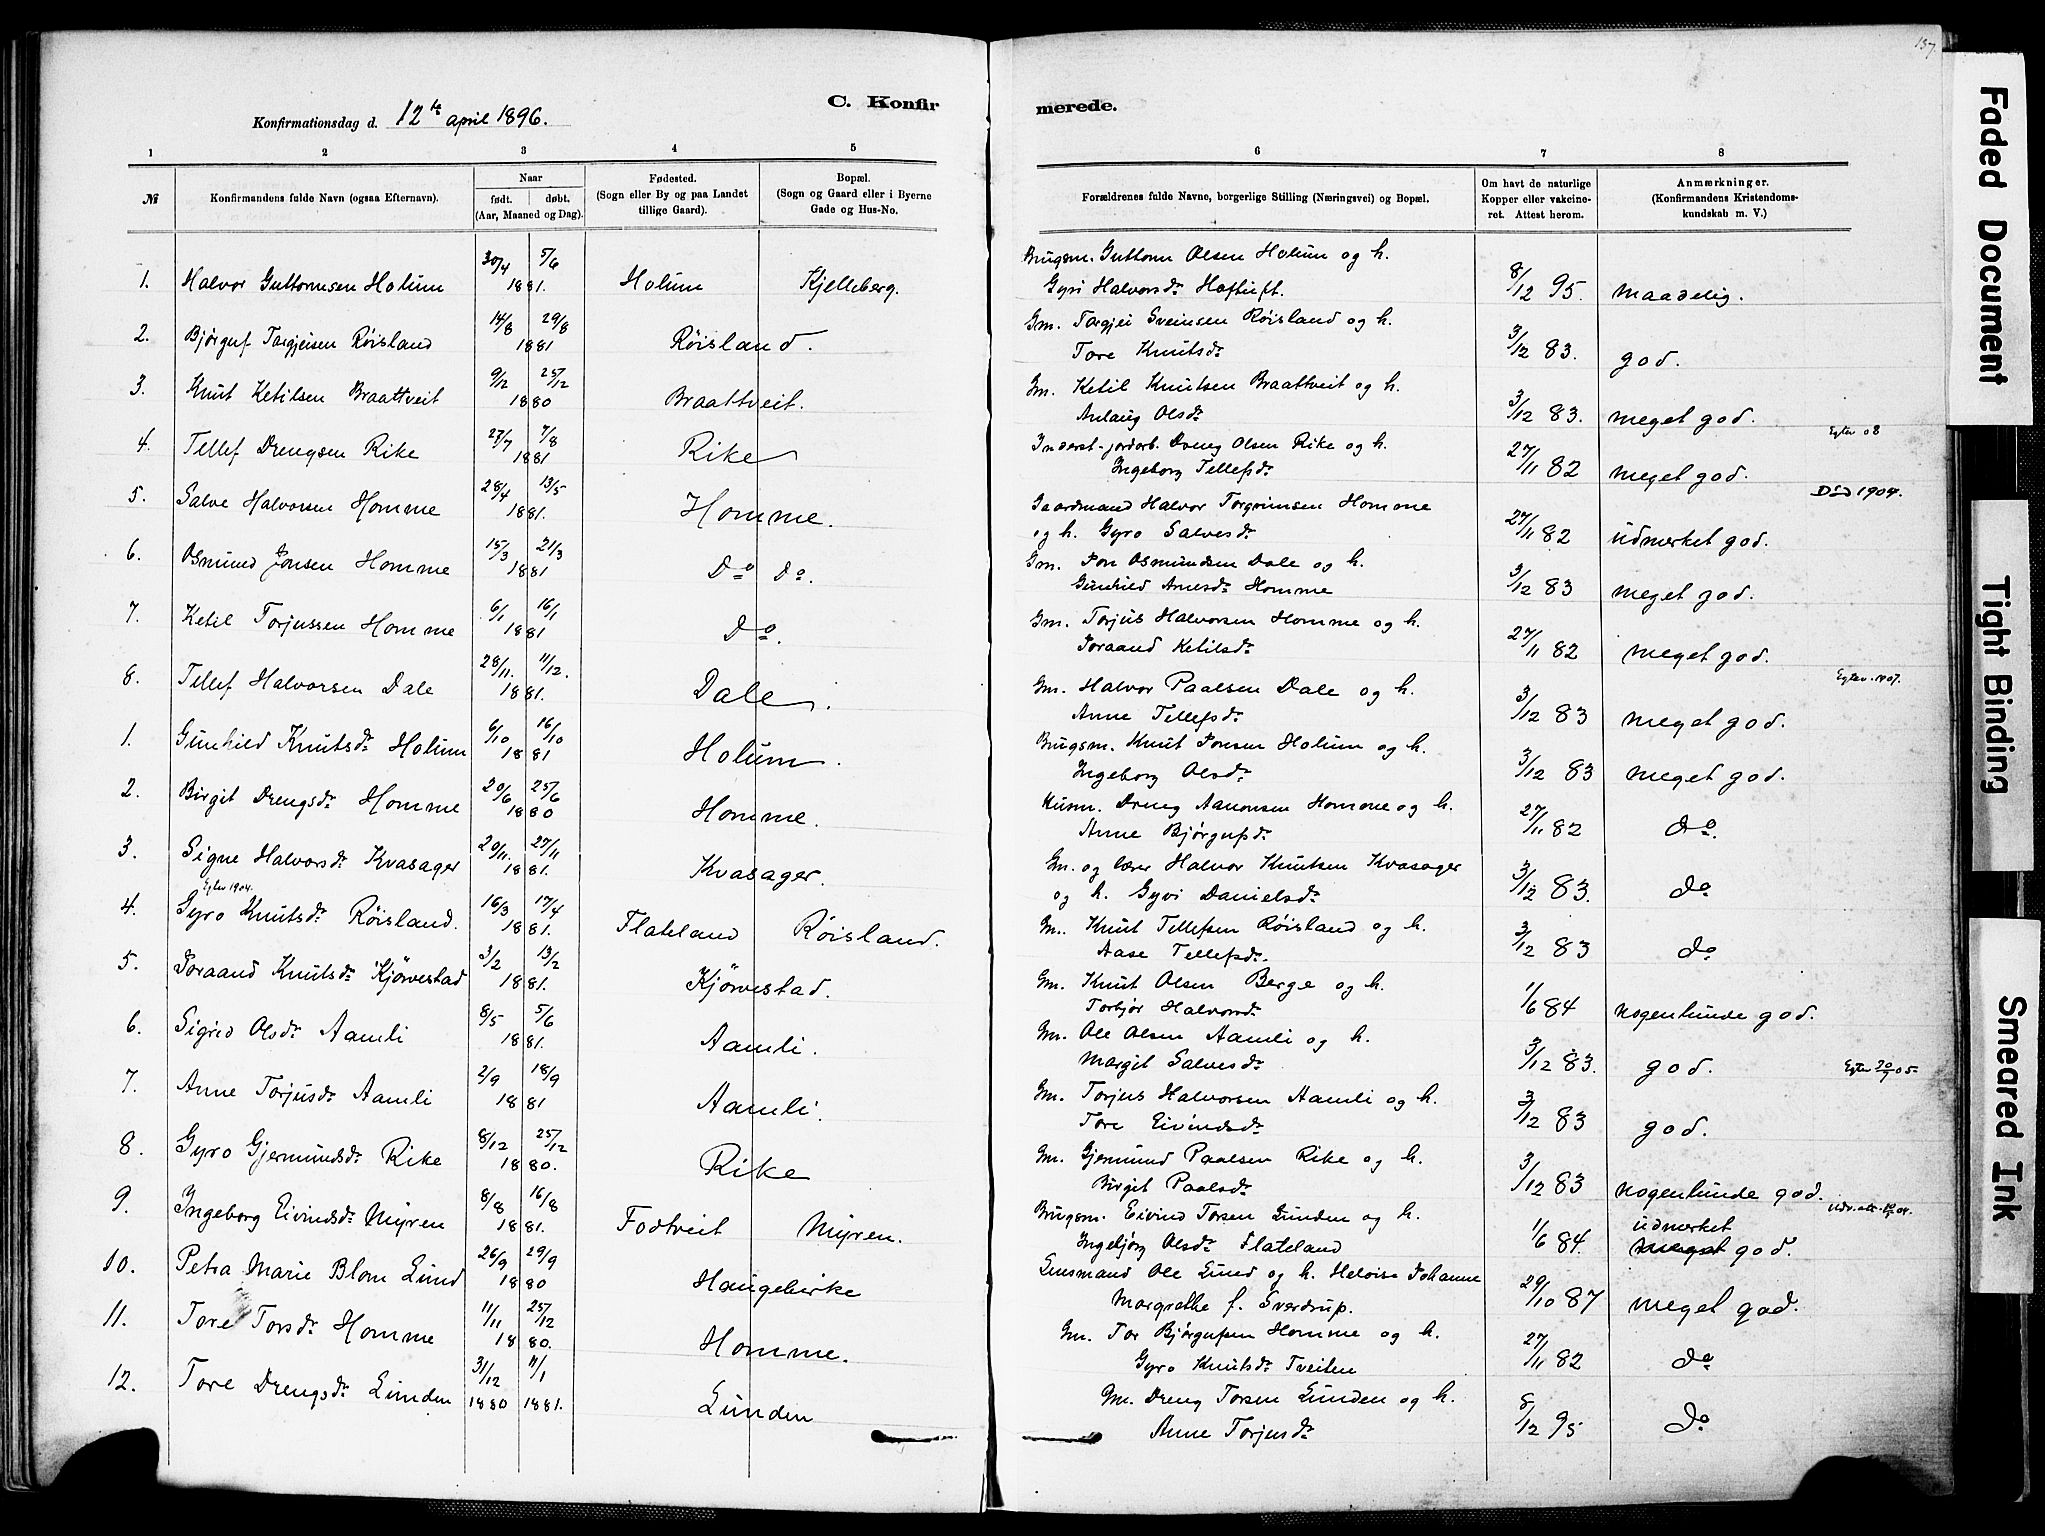 137.
C. Konfirmerede.
Konfirmationsdag d. 12te april 1896.
1 2 3 4 5 6 7 8
№ Konfirmandens fulde Navn (ogsaa Efternavn). Naar født. døbt. (Aar, Maaned og Dag). Fødested. (Sogn eller By og paa Landet tillige Gaard). Bopæl. (Sogn og Gaard eller i Byerne Gade og Hus-No. Forældrenes fulde Navne, borgerlige Stilling (Næringsvei) og Bopæl. Om havt de naturlige Kopper eller vakcineret. Attest herom. Anmærkninger. (Konfirmandens Kristendomskundskab m. V.)
1. Halvor Guttormsen Holum 30/4 5/6 1881. Holum Kjelleberg. Brugsm. Guttorm Olsen Holum og h.
Gyri Halvorsdr. Haftuft. 8/12 95. maadelig.
2. Bjørguf Targjeisen Røisland 14/8 29/8 1881 Røisland. Gm. Targjei Sveinsen Røisland og h.
Tore Knutsdr. 3/12 83. god.
3. Knut Ketilsen Braattveit 9/12 25/12 1880 Braattveit. Gm. Ketil Knutsen Braattveit og h.
Anlaug Olsdr. 3/12 83. meget god.
4. Tellef Drengsen Rike 27/7 7/8 1881 Rike Inderst-jordarb. Dreng Olsen Rike og h. Egtev 08
Ingeborg Tellefsdr. 27/11 82 meget god.
5. Salve Halvorsen Homme 28/4 13/5 1881. Homme. Gaardmand Halvor Torgrimsen Homme Død 1904.
og h. Gyro Salvesdr. 27/11 82 udmerket god.
6. Osmund Jonsen Homme 15/3 21/3 1881 Do Do. Gm. Jon Osmundsen Dale og h.
Gunhild Arnesdr. Homme 3/12 83 meget god.
7. Ketil Torjussen Homme 6/1 16/1 1881 Do. Gm. Torjus Halvorsen Homme og h.
Joraand Ketilsdr. 27/11 82 meget god.
8. Tellef Halvorsen Dale 28/11. 11/12. 1881. Dale. Gm. Halvor Paalsen Dale og h. Egtev. 1907.
Anne Tellefsdr. 3/12 83 meget god.
1. Gunhild Knutsdr. Holum 6/10 16/10 1881 Holum. Brugsm. Knut Jonsen Holum og h.
Ingeborg Olsdr. 3/12 83 meget god.
2. Birgit Drengsdr. Homme 20/6 25/6 1880 Homme. Husm. Dreng Aanonsen Homme og h.
Anne Bjørgufsdr. 27/11 82 do.
3. Signe Halvorsdr. Kvasager 20/11. 27/11 1881. Kvasager. Gm. og lærer Halvor Knutsen Kvasager
og h. Gyvi Danielsdr. 3/12 83. do
Egtev 1904.
4. Gyro Knutsdr. Røisland. 16/3 17/4 1881. Flateland Røisland. Gm. Knut Tellefsen Røisland og h.
Aase Tellefsdr. 3/12 83 do
5. Joraand Knutsdr. Kjørvestad 3/2 13/2 1881. Kjørvestad. Gm. Knut Olsen Berge og h.
Torbjør Halvorsdr. 1/6 84 nogenlunde god.
6. Sigrid Olsdr. Aamli 8/5 5/6 1881. Aamli. Gm. Ole Olsen Aamli og h.
Margit Salvesdr. 3/12 83. god. Egtev 20/7 05
7. Anne Torjusdr. Aamli 2/9 18/9 1881 Aamli. Gm. Torjus Halvorsen Aamli og h.
Tore Eivindsdr. 3/12 83 god.
8. Gyro Gjermundsdr. Rike 8/12 25/12 1880. Rike Gm. Gjermund Paalsen Rike og h.
Birgit Paalsdr. 3/12 83 nogenlunde god.
9. Ingeborg Eivindsdr. Myren 8/8 16/8 1881. Fodtveit Myren. Brugsm. Eivind Torsen Lunden og h. udmerket
Ingebjørg Olsdr. Flateland 1/6 84. meget god.
10. Petra Marie Blom Lund 26/9 29/9 1880 Haugebirke Lensmand Ole Lund og h. Heloise Johanne
Margrethe f. Sverdrup. 29/10 87 meget god.
11. Tore Torsdr. Homme 11/11 25/12 1880. Homme. Gm. Tor Bjørgufsen Homme og h.
Gyro Knutsdr. Tveiten 27/11 82 do
12. Tore Drengsdr. Lunden 31/12 1880 11/1 1881. Lunden Gm. Dreng Torsen Lunden og h.
Anne Torjusdr. 8/12 95 do
Faded Document
Tight Binding
Smeared Ink